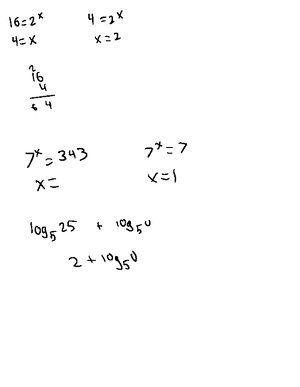 16=2^x 4=2^x
4=x x=2
2
16
4
64
7^x=343 7^x=7
x= x=1
log₅25 + log₅0
2+log₅0